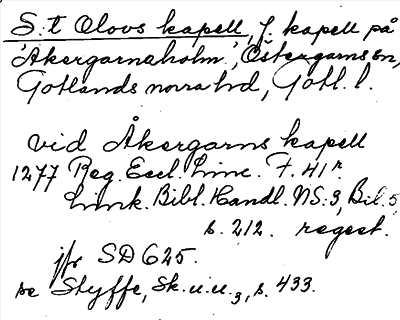 S:t Olovs kapell, f. kapell på
'Åkergarnaholm', Östergarns sn,
Gotlands norra hd, Gotl. l.
vid Åkergarns kapell
1277 Reg. Eccl. Linc. F. 41r.
Link. Bibl. Handl. NS:3, Bil. 5,
s. 212. regest.
jfr SD 625.
se Styffe, Sk. u. u. 3, s. 433.